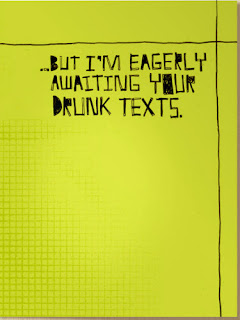 ...BUT I'M EAGERLY
AWAITING YOUR
DRUNK TEXTS.